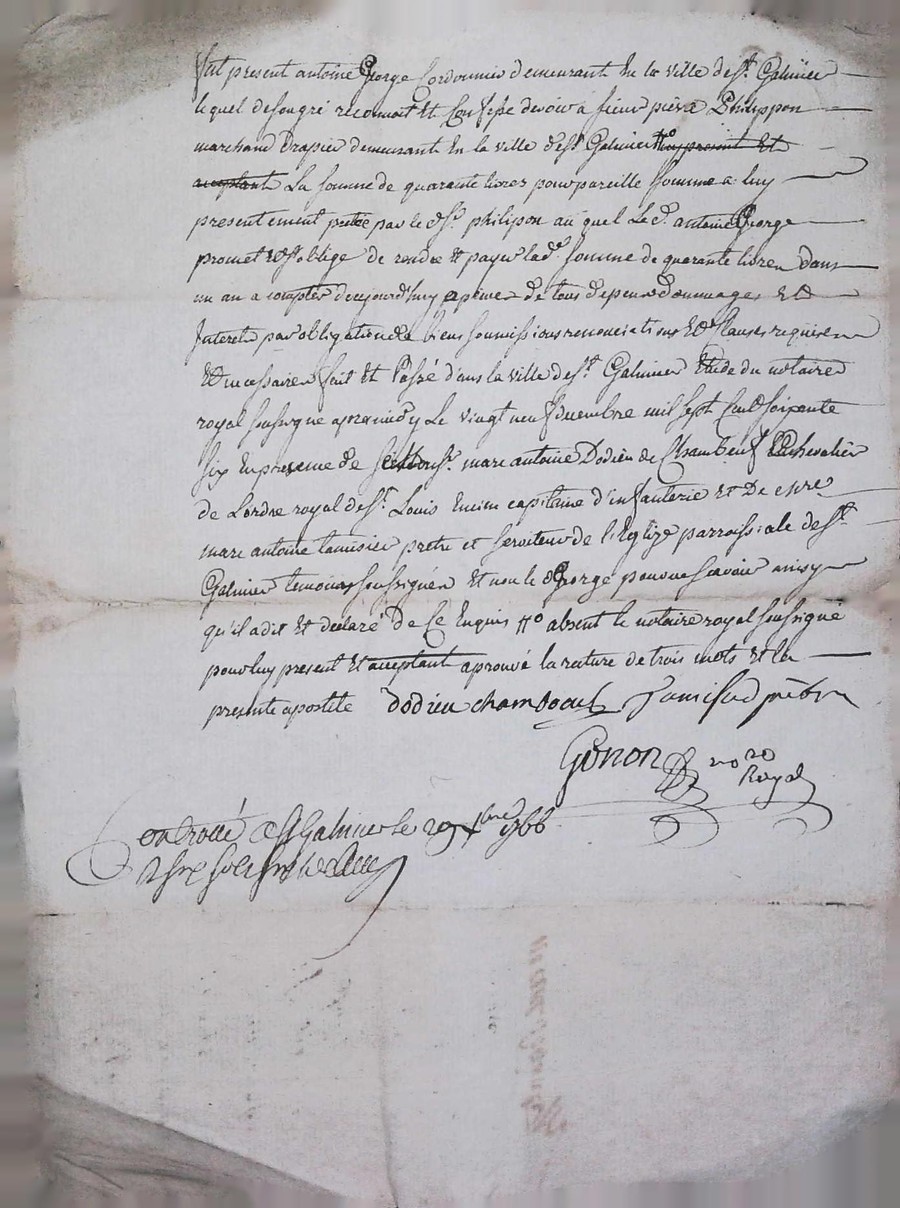 fut present antoine George Cordonnier demeurant En la ville de St. Galmier
lequel de son gré reconnoit Et Confesse devoir a sieur pierre Philippon
marchand Drapier demeurant En la ville de St Galmier # icy present Et
acceptant La somme de quarante livres pour pareille somme a luy
presentement pretée par le d Sr. philipon au quel Le d. antoine George
promet Et s'oblige de rendre Et payer lade. somme de quarante livres dans
un an a compter d'aujourd'huy a peine de tous depens dommages Et
Interets par obligation de biens soumissions renonciations Et Clauses requises
Et necessaires fait Et Passé dans la ville de St. Galmier Etude du notaire
royal soussigne apres midy Le vingt neuf decembre mil sept Cent soixante
six En presence de Sr. marc antoine Dodieu de Chambeuf chevalier
de Lordre royal de St. Louis Encien capitaine d'infanterie Et De
marc antoine tamisier pretre et serviteur de l'Eglize parroissiale de St.
Galmier temoins soussignés Et non le d George pour ne scavoir ainsy
qu'il a dit Et declaré De Ce Enquis # absent le notaire royal soussigné
pour luy present Et acceptant aprouvé la rature de trois mots Et la
presente apostile Dodieu chamboeuf Tamisier prêtre
Gonon nore
Royal
Controllé a St Galmier le 29 xbre 1766